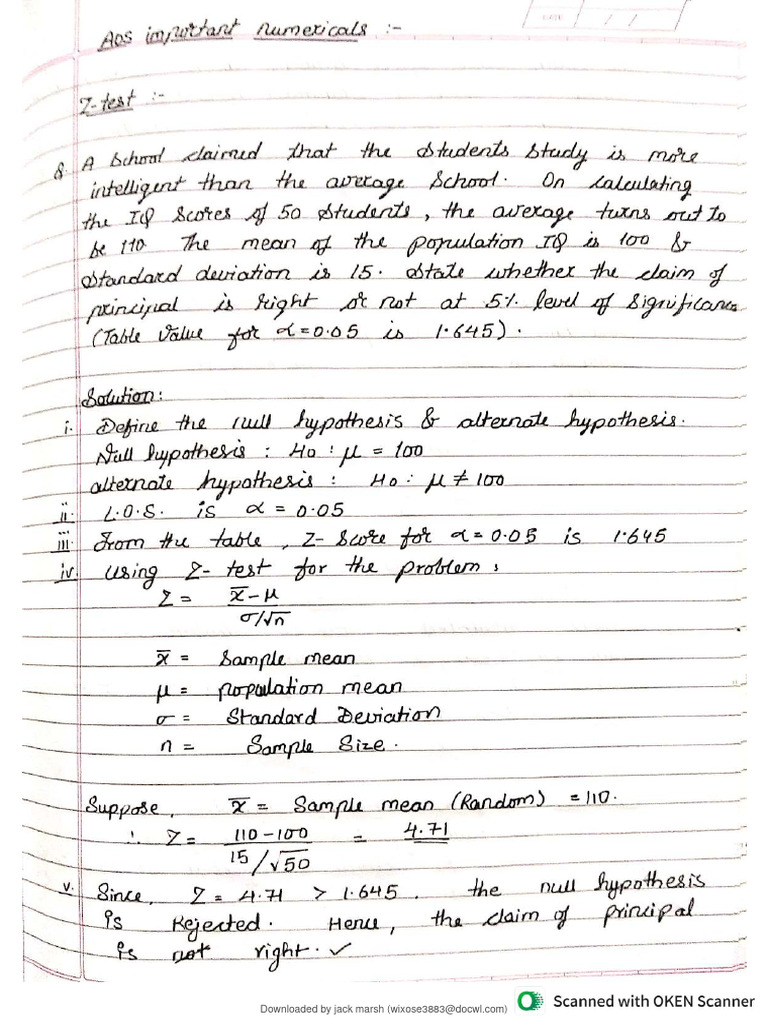 DATE / /
Aos important numericals :-
Z-test :-
Q. A School claimed that the students study is more
intelligent than the average School. On calculating
the IQ Scores of 50 students, the average turns out to
be 110. The mean of the population IQ is 100 &
standard deviation is 15. State whether the claim of
principal is right or not at 5% level of significance
(Table value for α=0.05 is 1.645).
Solution:
i. Define the null hypothesis & alternate hypothesis.
Null hypothesis : Ho : μ = 100
alternate hypothesis : Ho : μ ≠ 100
ii. L.O.S. is α = 0.05
iii. From the table, Z-score for α=0.05 is 1.645
iv. Using Z-test for the problem:
Z = x̄-μ / σ/√n
x̄ = Sample mean
μ = population mean
σ = Standard Deviation
n = Sample Size.
Suppose, x̄ = Sample mean (Random) = 110.
∴ Z = 110-100 / 15/√50 = 4.71
v. Since, Z = 4.71 > 1.645, the null hypothesis
is Rejected. Hence, the claim of principal
is not right. ✓
Downloaded by jack marsh (wixose3883@docwl.com)
Scanned with OKEN Scanner